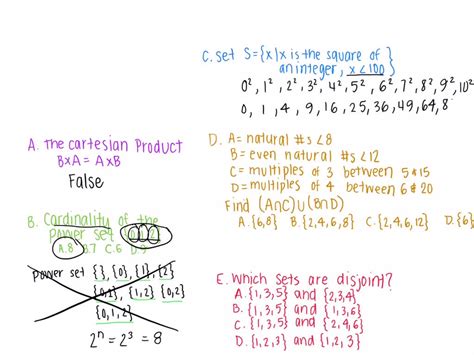 C. Set S={x|x is the square of
an integer, x<100}
0², 1², 2², 3², 4², 5², 6², 7², 8², 9², 10²
0, 1, 4, 9, 16, 25, 36, 49, 64, 8
A. The Cartesian Product
B×A = A×B
False
B. Cardinality of the
power set {0,1,2}
A.8 B.7 C.6 D.9
power set { }, {0}, {1}, {2}
{0,1}, {1,2} {0,2}
{0,1,2}
2ⁿ = 2³ = 8
D. A= natural #s <8
B= even natural #s <12
C= multiples of 3 between 5 & 15
D= multiples of 4 between 6 & 20
Find (A∩C)∪(B∩D)
A.{6,8} B.{2,4,6,8} C.{2,4,6,12} D.{6}
E. Which sets are disjoint?
A. {1,3,5} and {2,3,4}
B. {1,3,5} and {1,2,3}
C. {1,3,5} and {2,4,6}
D. {1,2,3} and {1,2,3}